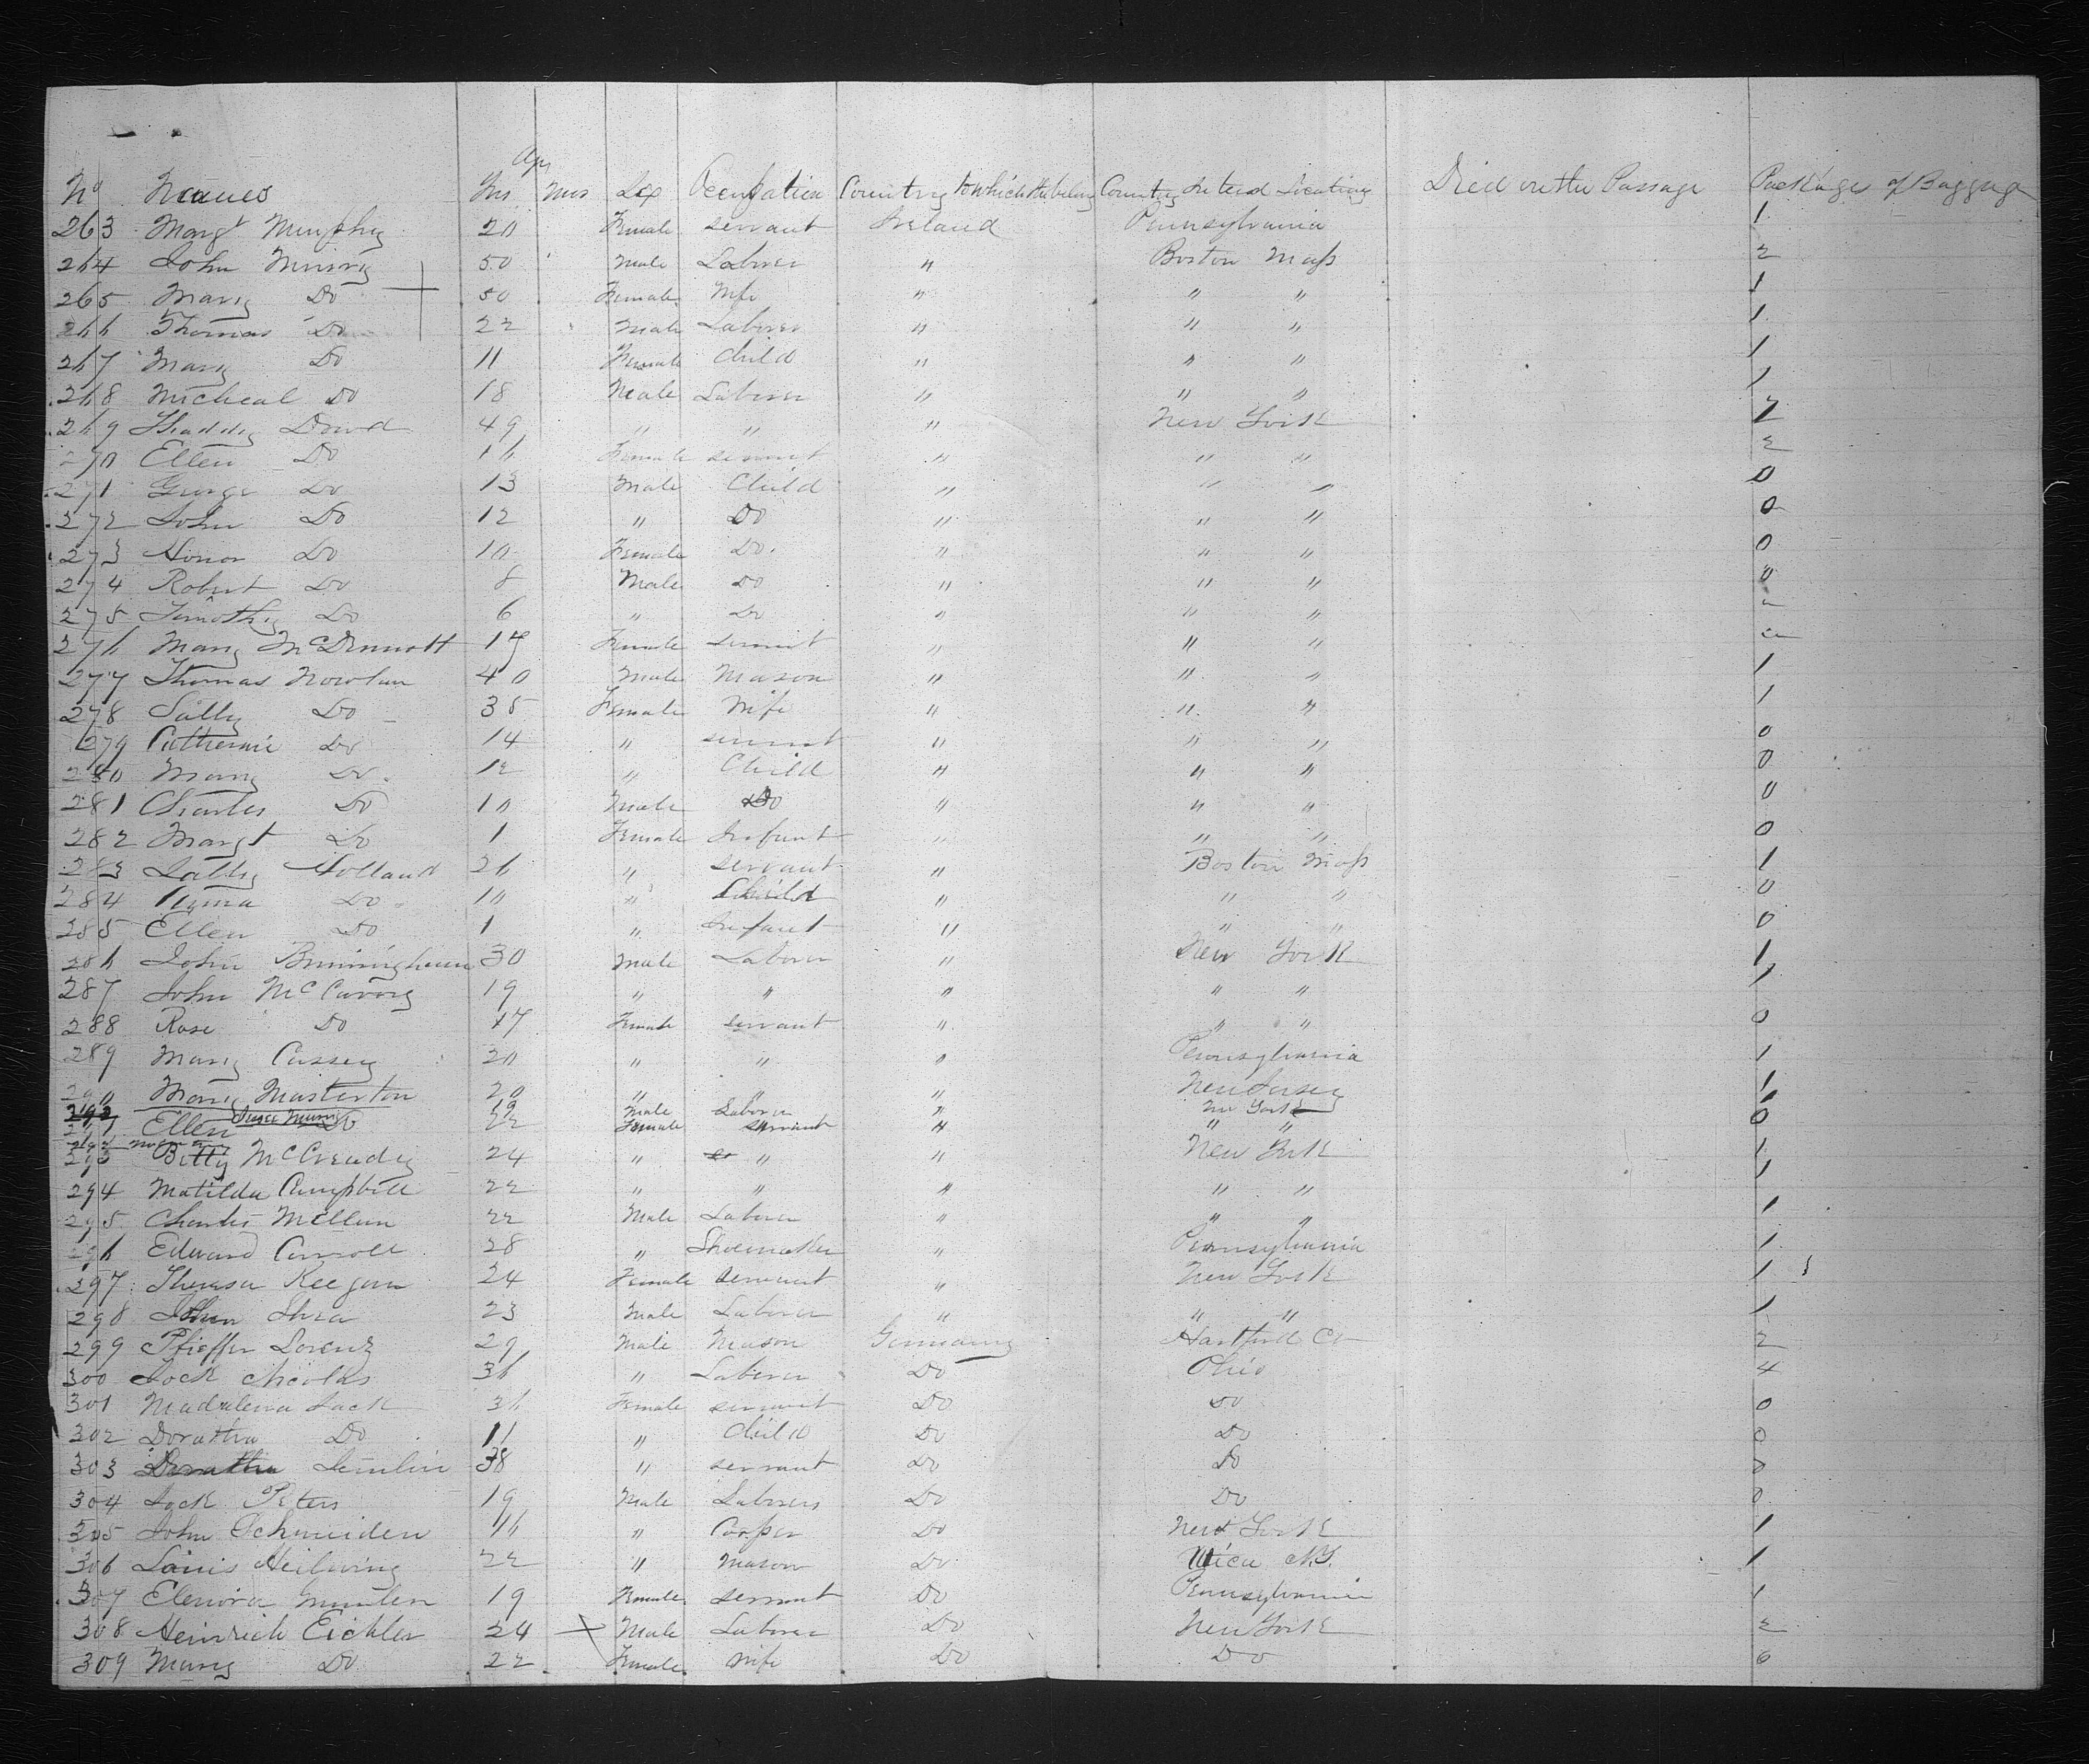 Age
No Names Yrs Mos Sex Occupation Country to which they belong Country Intend Locating Died on the Passage Packages of Baggage
263 Margt Murphy 20 Female servant Ireland Pennsylvania 1
264 John 50 Male Laborer " Boston Mass 2
265 Mary Do 50 Female Wife " " " 1
266 Thomas Do 22 Male Laborer " " " 1
267 Mary Do 11 Female Child " " " 1
268 Micheal Do 18 Male Laborer " " " 1
269 Thaddy Dowd 49 " " " New York
270 Ellen Do 16 Female servant " " " 2
271 George Do 13 Male Child " " " 0
272 John Do 12 " Do " " " 0
273 Honor Do 10 Female Do. " " " 0
274 Robert Do 8 Male Do " " " 0
275 Timothy Do 6 " Do " " "
276 Mary McDermott Female servant " " "
277 Thomas Nowlan 40 Male Mason " " " 1
278 Sally Do 35 Female Wife " " " 1
279 Catherine Do 14 " servant " " " 0
280 Mary Do. 12 " Child " " " 0
281 Charles Do 10 Male Do " " " 0
282 Margt Do 1 Female Infant " " " 0
283 Sally Holland 26 " servant " Boston Mass 1
284 Do 10 " Child " " " 0
285 Ellen Do 1 " Infant " " " 0
286 John Birmingham 30 Male Laborer " New York 1
287 John 19 " " " " " 1
288 Rose Do 17 Female servant " " " 0
289 Mary Cassey 20 " " " Pennsylvania 1
290 Mary Masterton 20 " " " New Jersey 1
19 Male Laborer " New York
291 Ellen Do 22 Female servant " " " 0
293 Betty McCready 24 " " " New York 1
294 Matilda Campbell 22 " " " " " 1
295 Charles McEllun 22 Male Laborer " " " 1
296 Edward Carroll 28 " Shoemaker " Pennsylvania 1
297 Theresa Reegan 24 Female servant " New York 1
298 John Shea 23 Male Laborer " " " 1
299 Pfieffer Lorenz 29 Male Mason Germany Hartford Co 2
300 Jock Nicolas 36 " Laborer Do Ohio 4
301 Madalena Jack 36 Female servant Do Do 0
302 Doratha Do 11 " Child Do Do 0
303 Doratha 38 " servant Do Do 0
304 Jock Peters 19 Male Laborers Do Do 0
305 John Schneider " Do New York 1
306 Louis Heilwing 22 " Mason Do Utica N.Y. 1
307 Elenora 19 Female servant Do Pennsylvania 1
308 Heinrich Eichler 24 Male Laborer Do New York 2
309 Mary Do 22 Female Wife Do Do 0